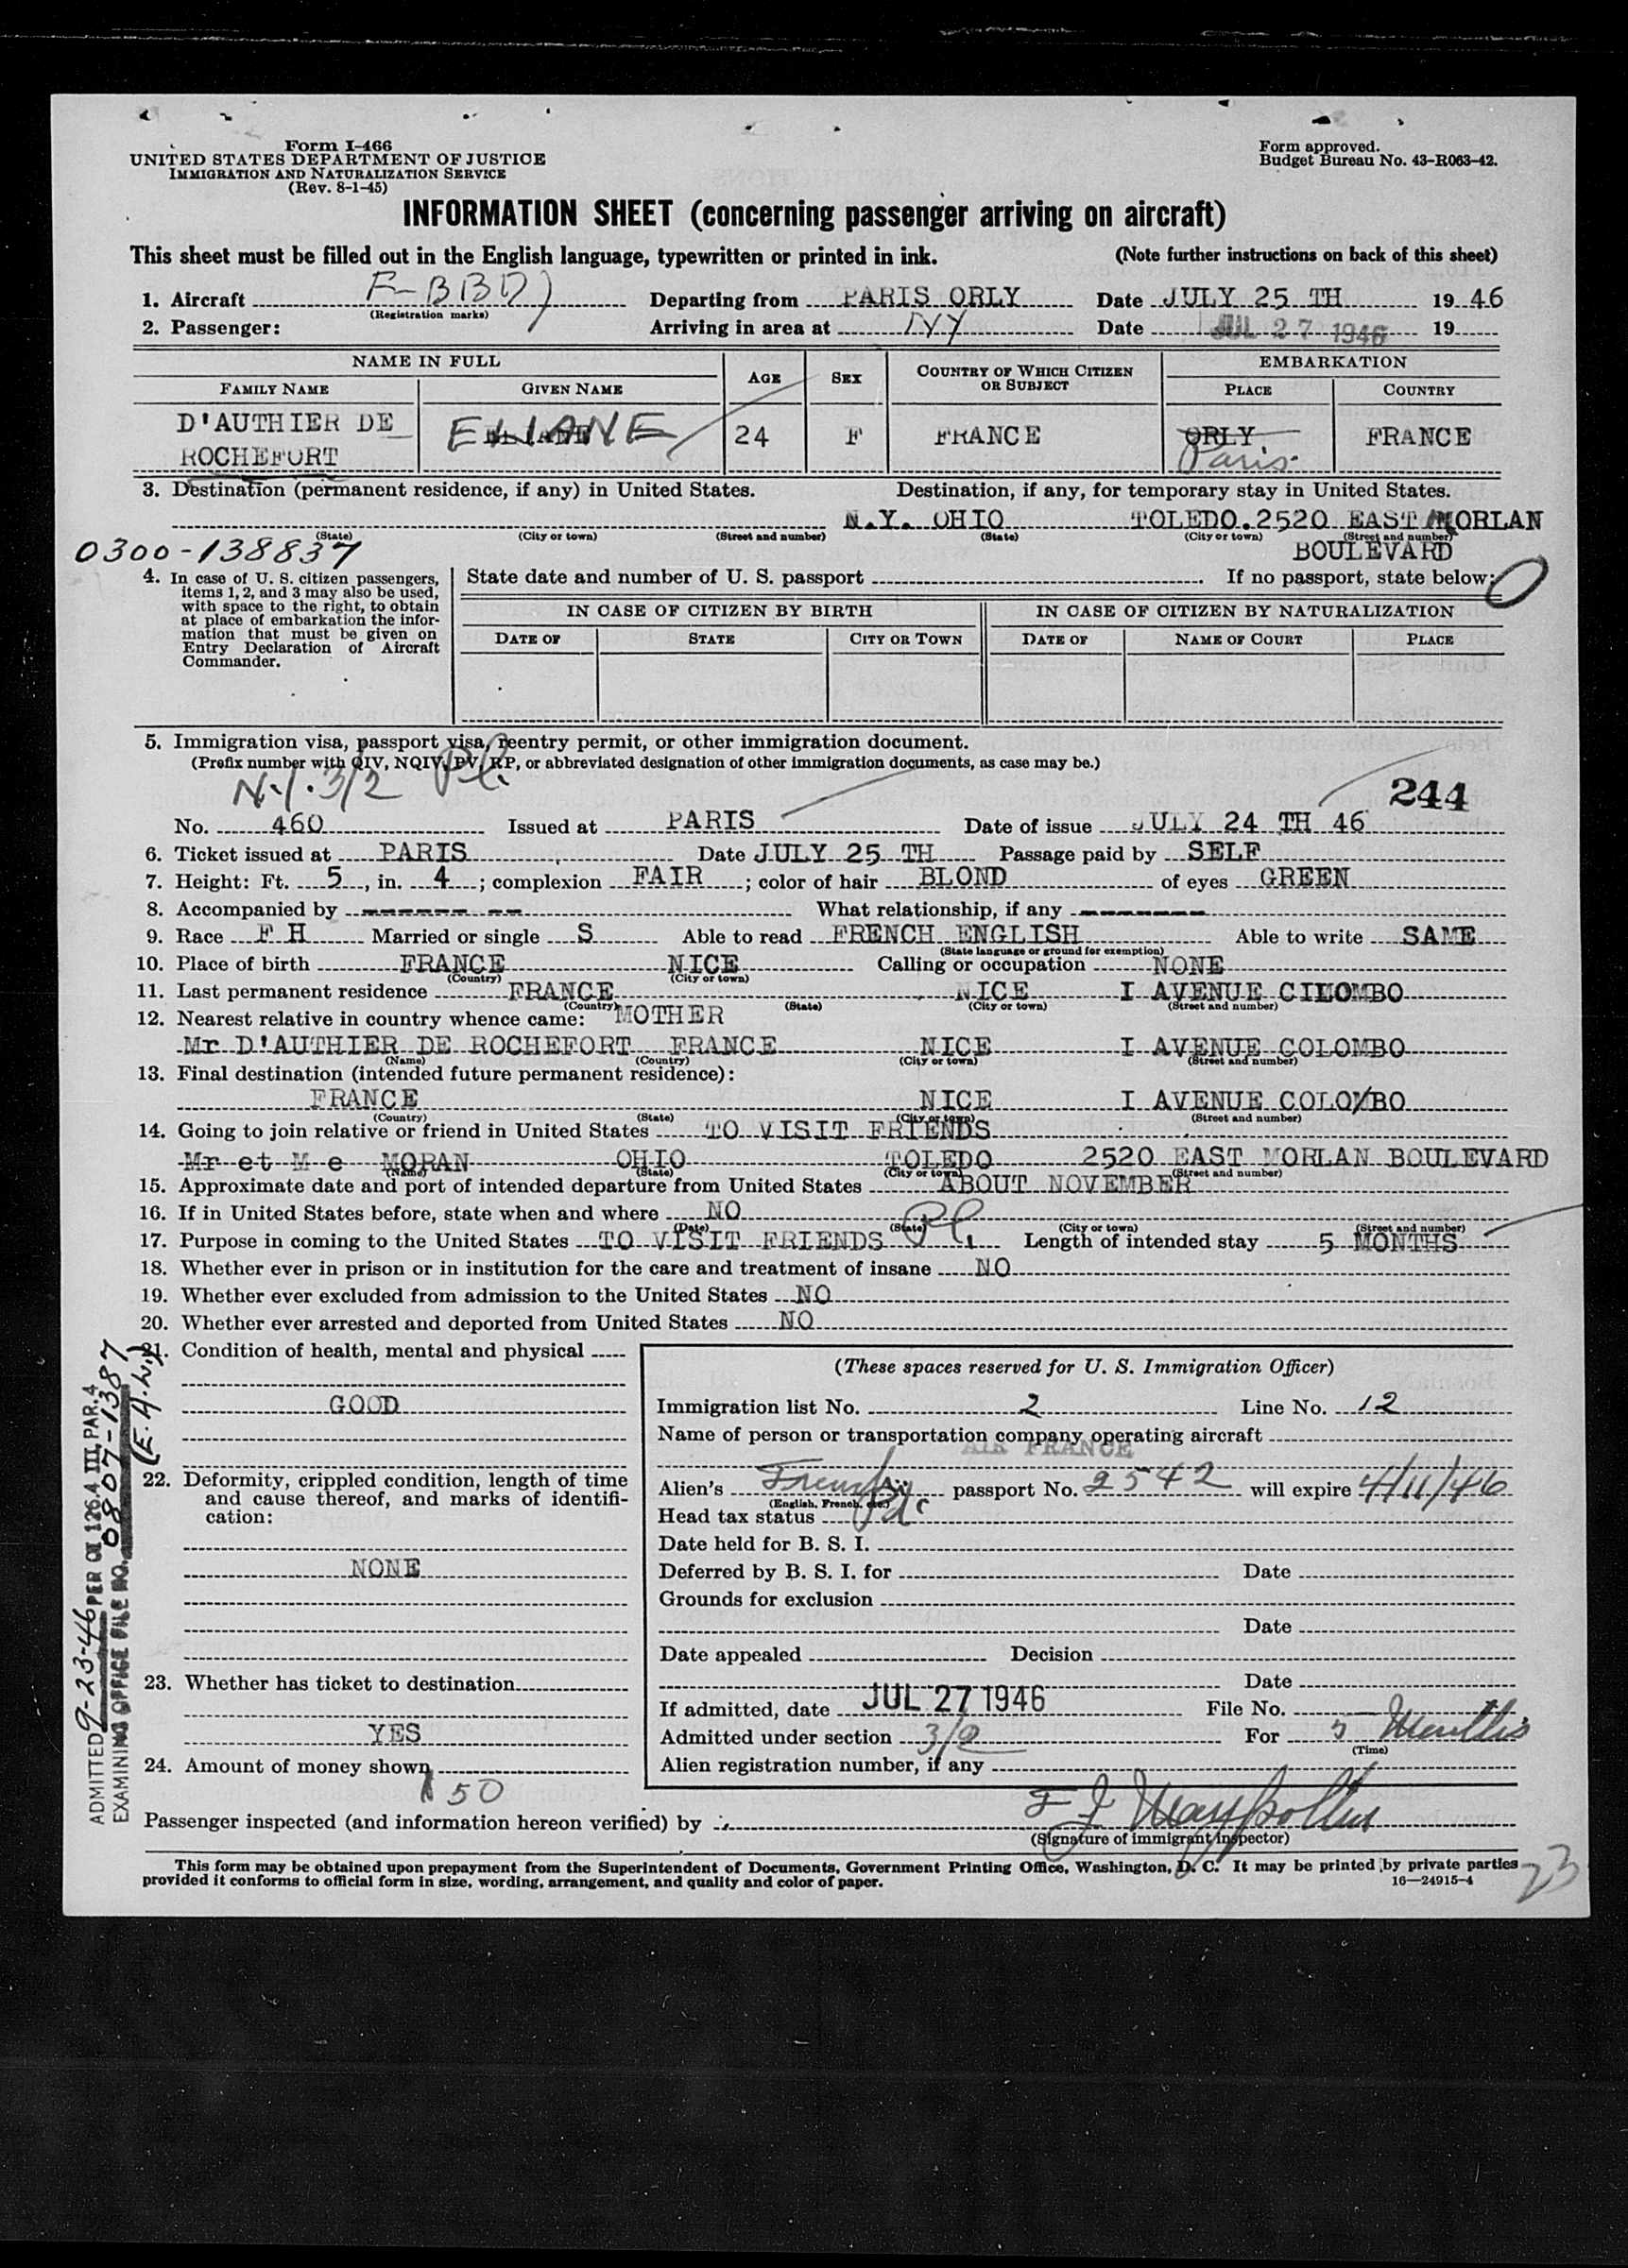 Form I-466
UNITED STATES DEPARTMENT OF JUSTICE
IMMIGRATION AND NATURALIZATION SERVICE
(Rev. 8-1-45)
Form approved.
Budget Bureau No. 43-R063-42.
INFORMATION SHEET (concerning passenger arriving on aircraft)
This sheet must be filled out in the English language, typewritten or printed in ink. (Note further instructions on back of this sheet)
1. Aircraft F-BBD Departing from PARIS ORLY Date JULY 25 TH 19 46
(Registration marks)
2. Passenger: Arriving in area at Date JUL 27 1946 19
NAME IN FULL AGE SEX COUNTRY OF WHICH CITIZEN OR SUBJECT EMBARKATION
FAMILY NAME GIVEN NAME PLACE COUNTRY
D'AUTHIER DE ROCHEFORT ELIANE 24 F FRANCE ORLY Paris FRANCE
3. Destination (permanent residence, if any) in United States. Destination, if any, for temporary stay in United States.
N.Y. OHIO TOLEDO. 2520 EAST MORLAN
(State) (City or town) (Street and number) (State) (City or town) (Street and number)
0300-138837 BOULEVARD
4. In case of U. S. citizen passengers, items 1, 2, and 3 may also be used, with space to the right, to obtain at place of embarkation the information that must be given on Entry Declaration of Aircraft Commander.
State date and number of U. S. passport If no passport, state below:
IN CASE OF CITIZEN BY BIRTH IN CASE OF CITIZEN BY NATURALIZATION
DATE OF STATE CITY OR TOWN DATE OF NAME OF COURT PLACE
5. Immigration visa, passport visa, reentry permit, or other immigration document.
(Prefix number with QIV, NQIV, PV, RP, or abbreviated designation of other immigration documents, as case may be.)
N.I. 3/2
244
No. 460 Issued at PARIS Date of issue JULY 24 TH 46
6. Ticket issued at PARIS Date JULY 25 TH Passage paid by SELF
7. Height: Ft. 5, in. 4; complexion FAIR; color of hair BLOND of eyes GREEN
8. Accompanied by ------ -- What relationship, if any -------
9. Race F H Married or single S Able to read FRENCH ENGLISH Able to write SAME
(State language or ground for exemption)
10. Place of birth FRANCE NICE Calling or occupation NONE
(Country) (City or town)
11. Last permanent residence FRANCE NICE I AVENUE CILOMBO
(Country) (State) (City or town) (Street and number)
12. Nearest relative in country whence came: MOTHER
Mr D'AUTHIER DE ROCHEFORT FRANCE NICE I AVENUE COLOMBO
(Name) (Country) (City or town) (Street and number)
13. Final destination (intended future permanent residence):
FRANCE NICE I AVENUE COLOMBO
(Country) (State) (City or town) (Street and number)
14. Going to join relative or friend in United States TO VISIT FRIENDS
Mr et M e MORAN OHIO TOLEDO 2520 EAST MORLAN BOULEVARD
(Name) (State) (City or town) (Street and number)
15. Approximate date and port of intended departure from United States ABOUT NOVEMBER
16. If in United States before, state when and where NO
(Date) (State) (City or town) (Street and number)
17. Purpose in coming to the United States TO VISIT FRIENDS Length of intended stay 5 MONTHS
18. Whether ever in prison or in institution for the care and treatment of insane NO
19. Whether ever excluded from admission to the United States NO
20. Whether ever arrested and deported from United States NO
21. Condition of health, mental and physical
GOOD
22. Deformity, crippled condition, length of time and cause thereof, and marks of identification:
NONE
23. Whether has ticket to destination
YES
24. Amount of money shown
50
(These spaces reserved for U. S. Immigration Officer)
Immigration list No. 2 Line No. 12
Name of person or transportation company operating aircraft
AIR FRANCE
Alien's French passport No. 2542 will expire 4/11/46
(English, French, etc.)
Head tax status
Date held for B. S. I.
Deferred by B. S. I. for Date
Grounds for exclusion
Date
Date appealed Decision
Date
If admitted, date JUL 27 1946 File No.
Admitted under section 3/2 For 5 Months
(Time)
Alien registration number, if any
Passenger inspected (and information hereon verified) by
(Signature of immigrant inspector)
This form may be obtained upon prepayment from the Superintendent of Documents, Government Printing Office, Washington, D. C. It may be printed by private parties
provided it conforms to official form in size, wording, arrangement, and quality and color of paper. 16—24915-4
23
ADMITTED 9-23-46 PER OI 126.4 III, PAR. 4
EXAMINING OFFICE FILE NO. 0807-1387
(E.A.W.)